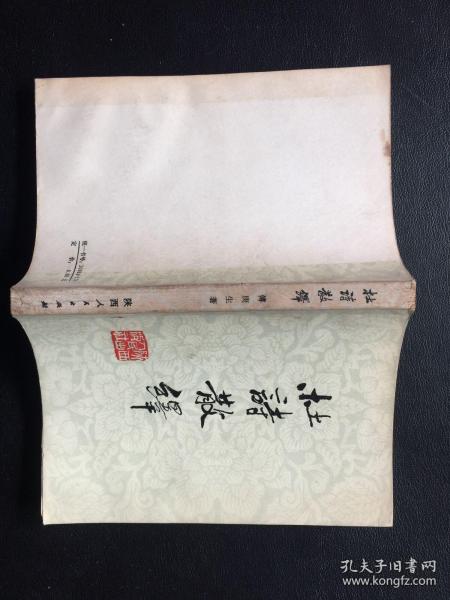 杜詩散繹
杜詩散繹 傅庚生著 陕西人民出版社
统一书号
定价
孔夫子旧书网
www.kongfz.com